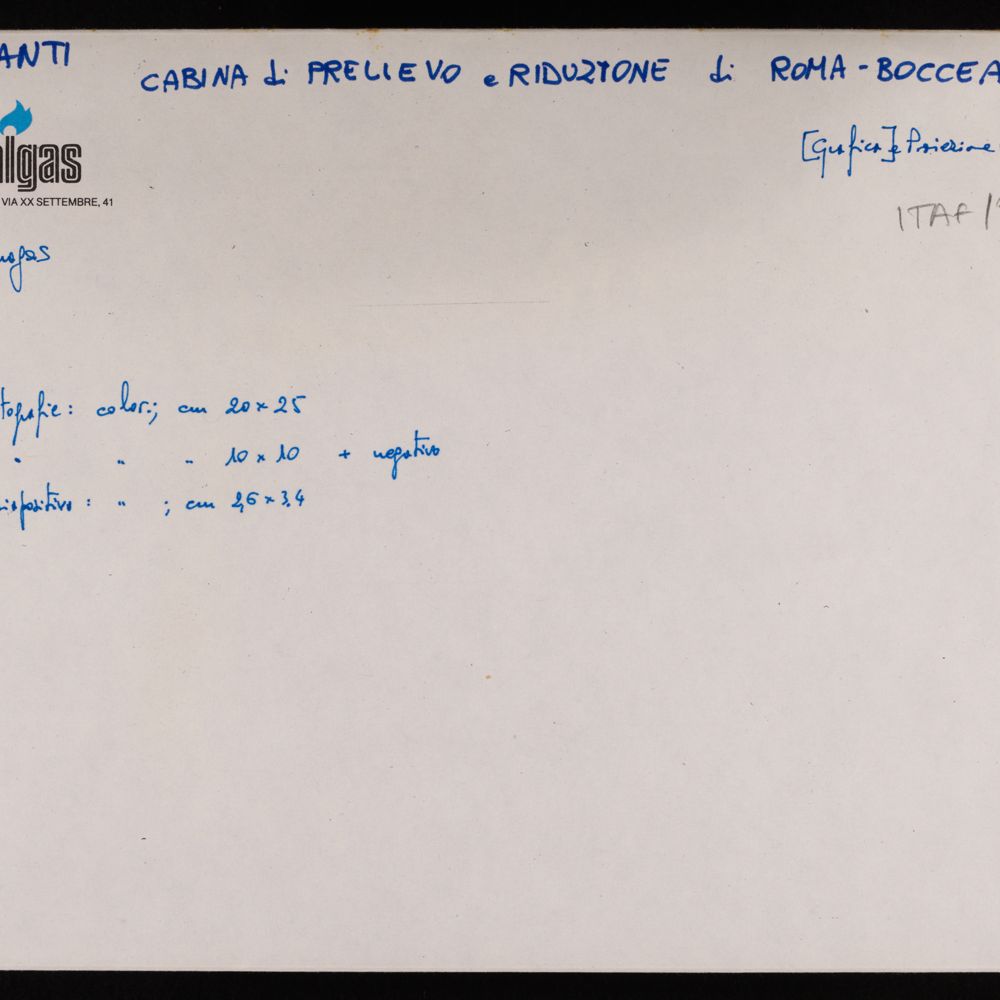 ANTI
CABINA di PRELIEVO e RIDUZIONE di ROMA - BOCCEA
[Grafica] e
lgas
VIA XX SETTEMBRE, 41
ITAF/
ogas
tografie: color.; cm 20 x 25
" " " 10 x 10 + negativo
iapositiva: " ; cm 2,6 x 3,4